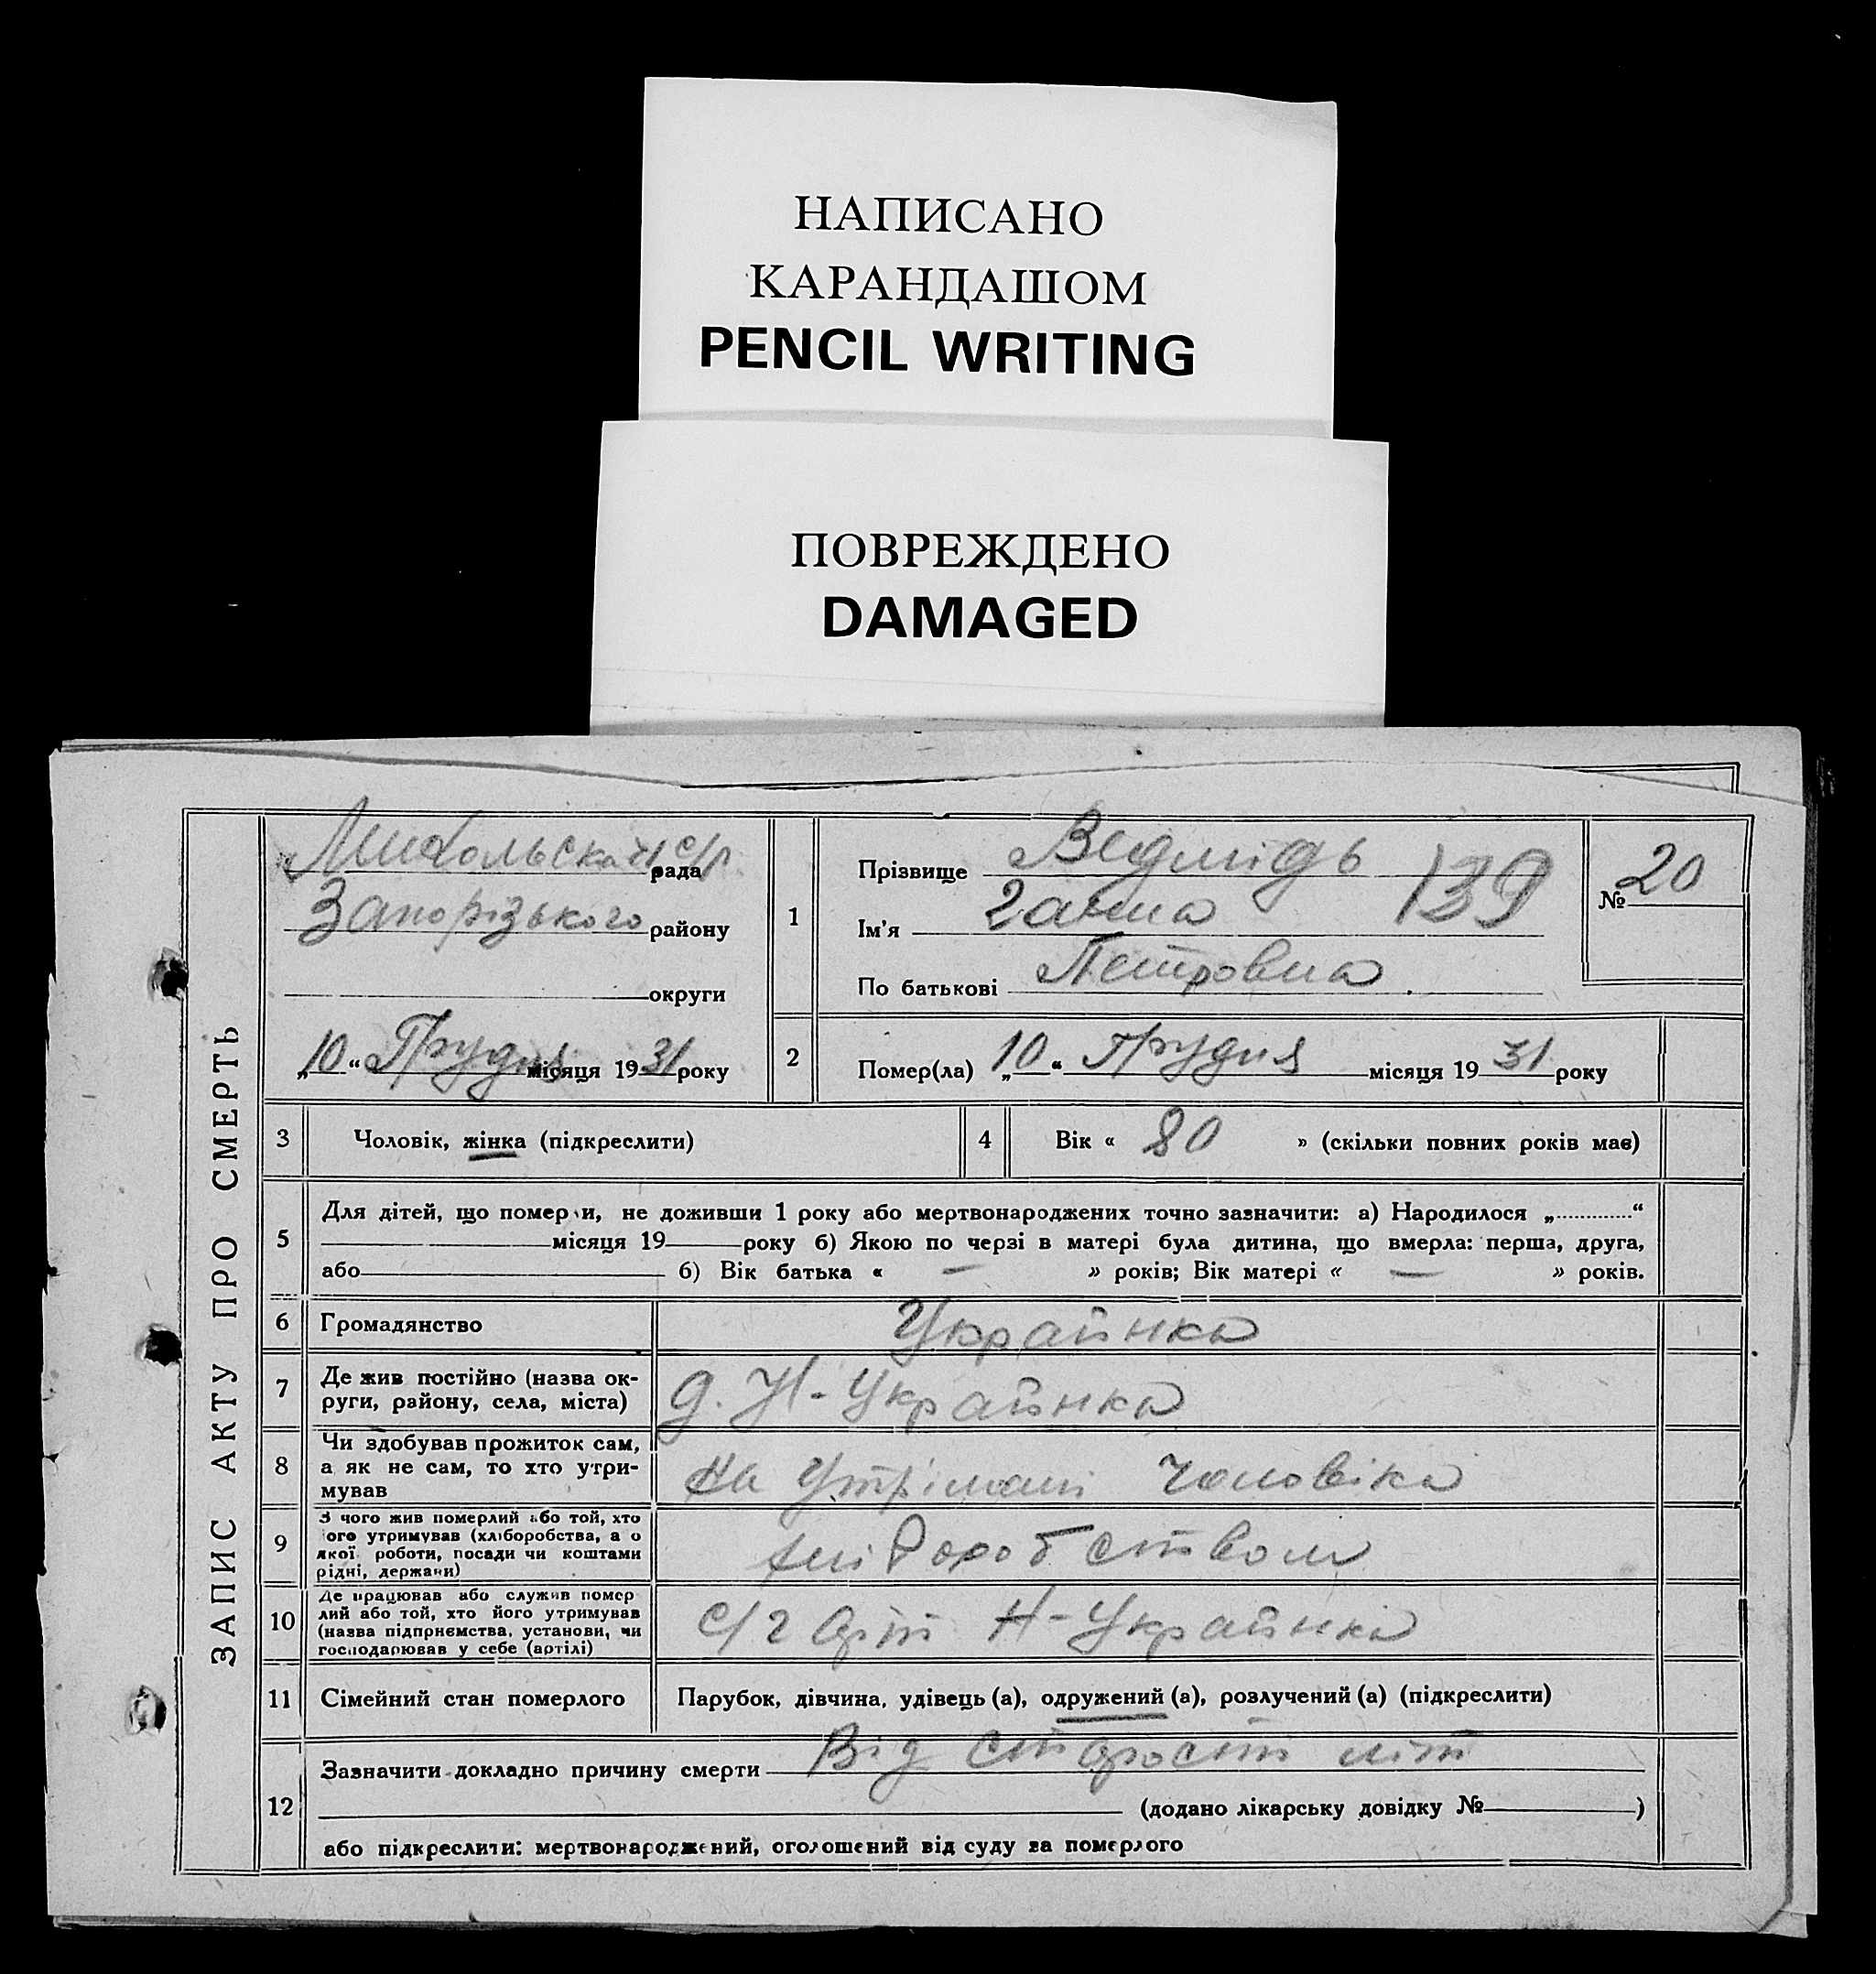 НАПИСАНО
КАРАНДАШОМ
PENCIL WRITING
ПОВРЕЖДЕНО
DAMAGED
ЗАПИС АКТУ ПРО СМЕРТЬ
с/р. рада
Запорізького району
округи
„10“ Грудня місяця 1931 року
1
Прізвище Ведмідь
139
Ім'я Ганна
По батькові Петровна
№ 20
2
Помер(ла) „10“ Грудня місяця 1931 року
3
Чоловік, жінка (підкреслити)
4
Вік « 80 » (скільки повних років має)
5
Для дітей, що померли, не доживши 1 року або мертвонароджених точно зазначити: а) Народилося „............“
місяця 19 року б) Якою по черзі в матері була дитина, що вмерла: перша, друга,
або б) Вік батька « — » років; Вік матері « — » років.
6
Громадянство
Українка
7
Де жив постійно (назва ок-
руги, району, села, міста)
д. Н-Українка
8
Чи здобував прожиток сам,
а як не сам, то хто утри-
мував
на утрімані чоловіка
9
З чого жив померлий або той, хто
його утримував (хліборобства, а о
якої роботи, посади чи коштами
рідні, держави)
10
Де працював або служив помер
лий або той, хто його утримував
(назва підприємства, установи, чи
господарював у себе (артілі)
с/г арт Н-Українка
11
Сімейний стан померлого
Парубок, дівчина, удівець (а), одружений (а), розлучений (а) (підкреслити)
12
Зазначити докладно причину смерти Від старості літ
(додано лікарську довідку № )
або підкреслити: мертвонароджений, оголошений від суду за померлого